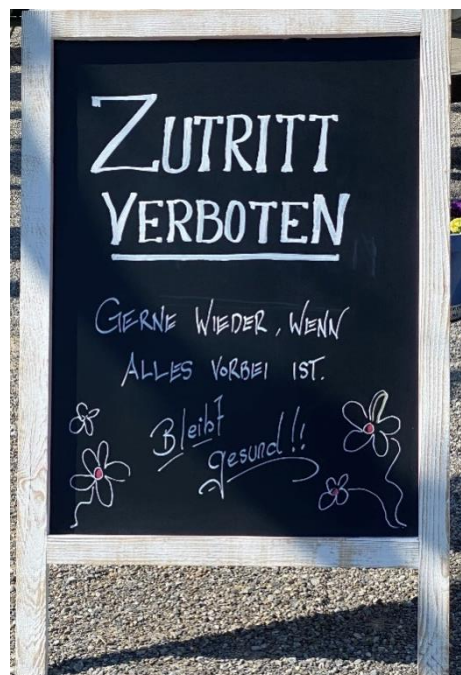 ZUTRITT
VERBOTEN
GERNE WIEDER, WENN
ALLES VORBEI IST.
Bleibt
gesund!!